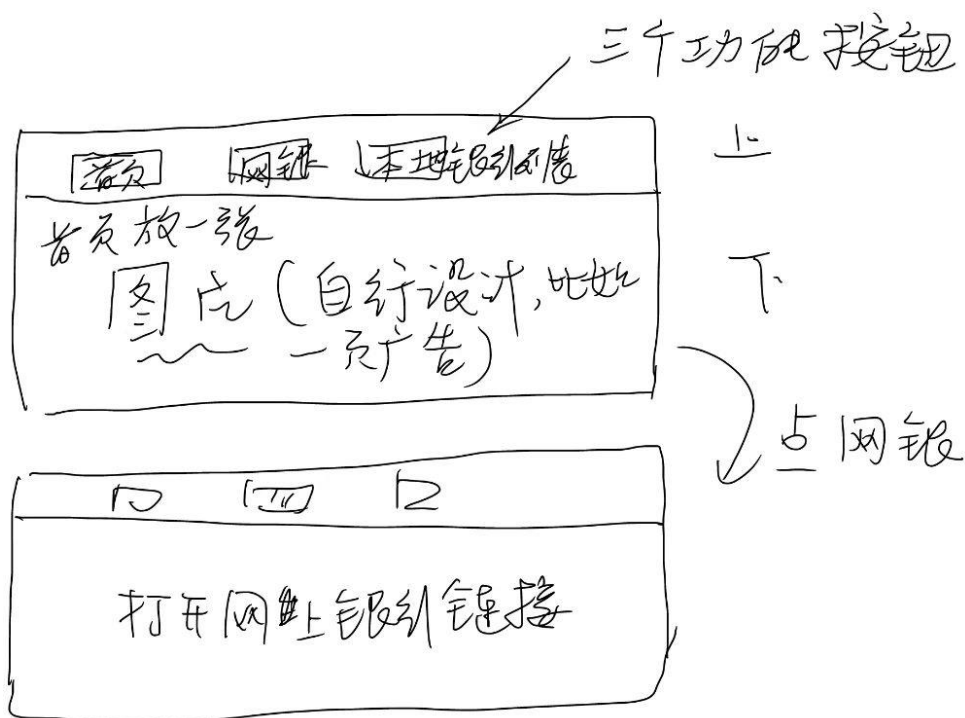 三个功能按钮
首页 网银 本地银行列表
上
首页放一张
图片(自行设计,比如
一页广告)
下
点网银
打开网上银行链接